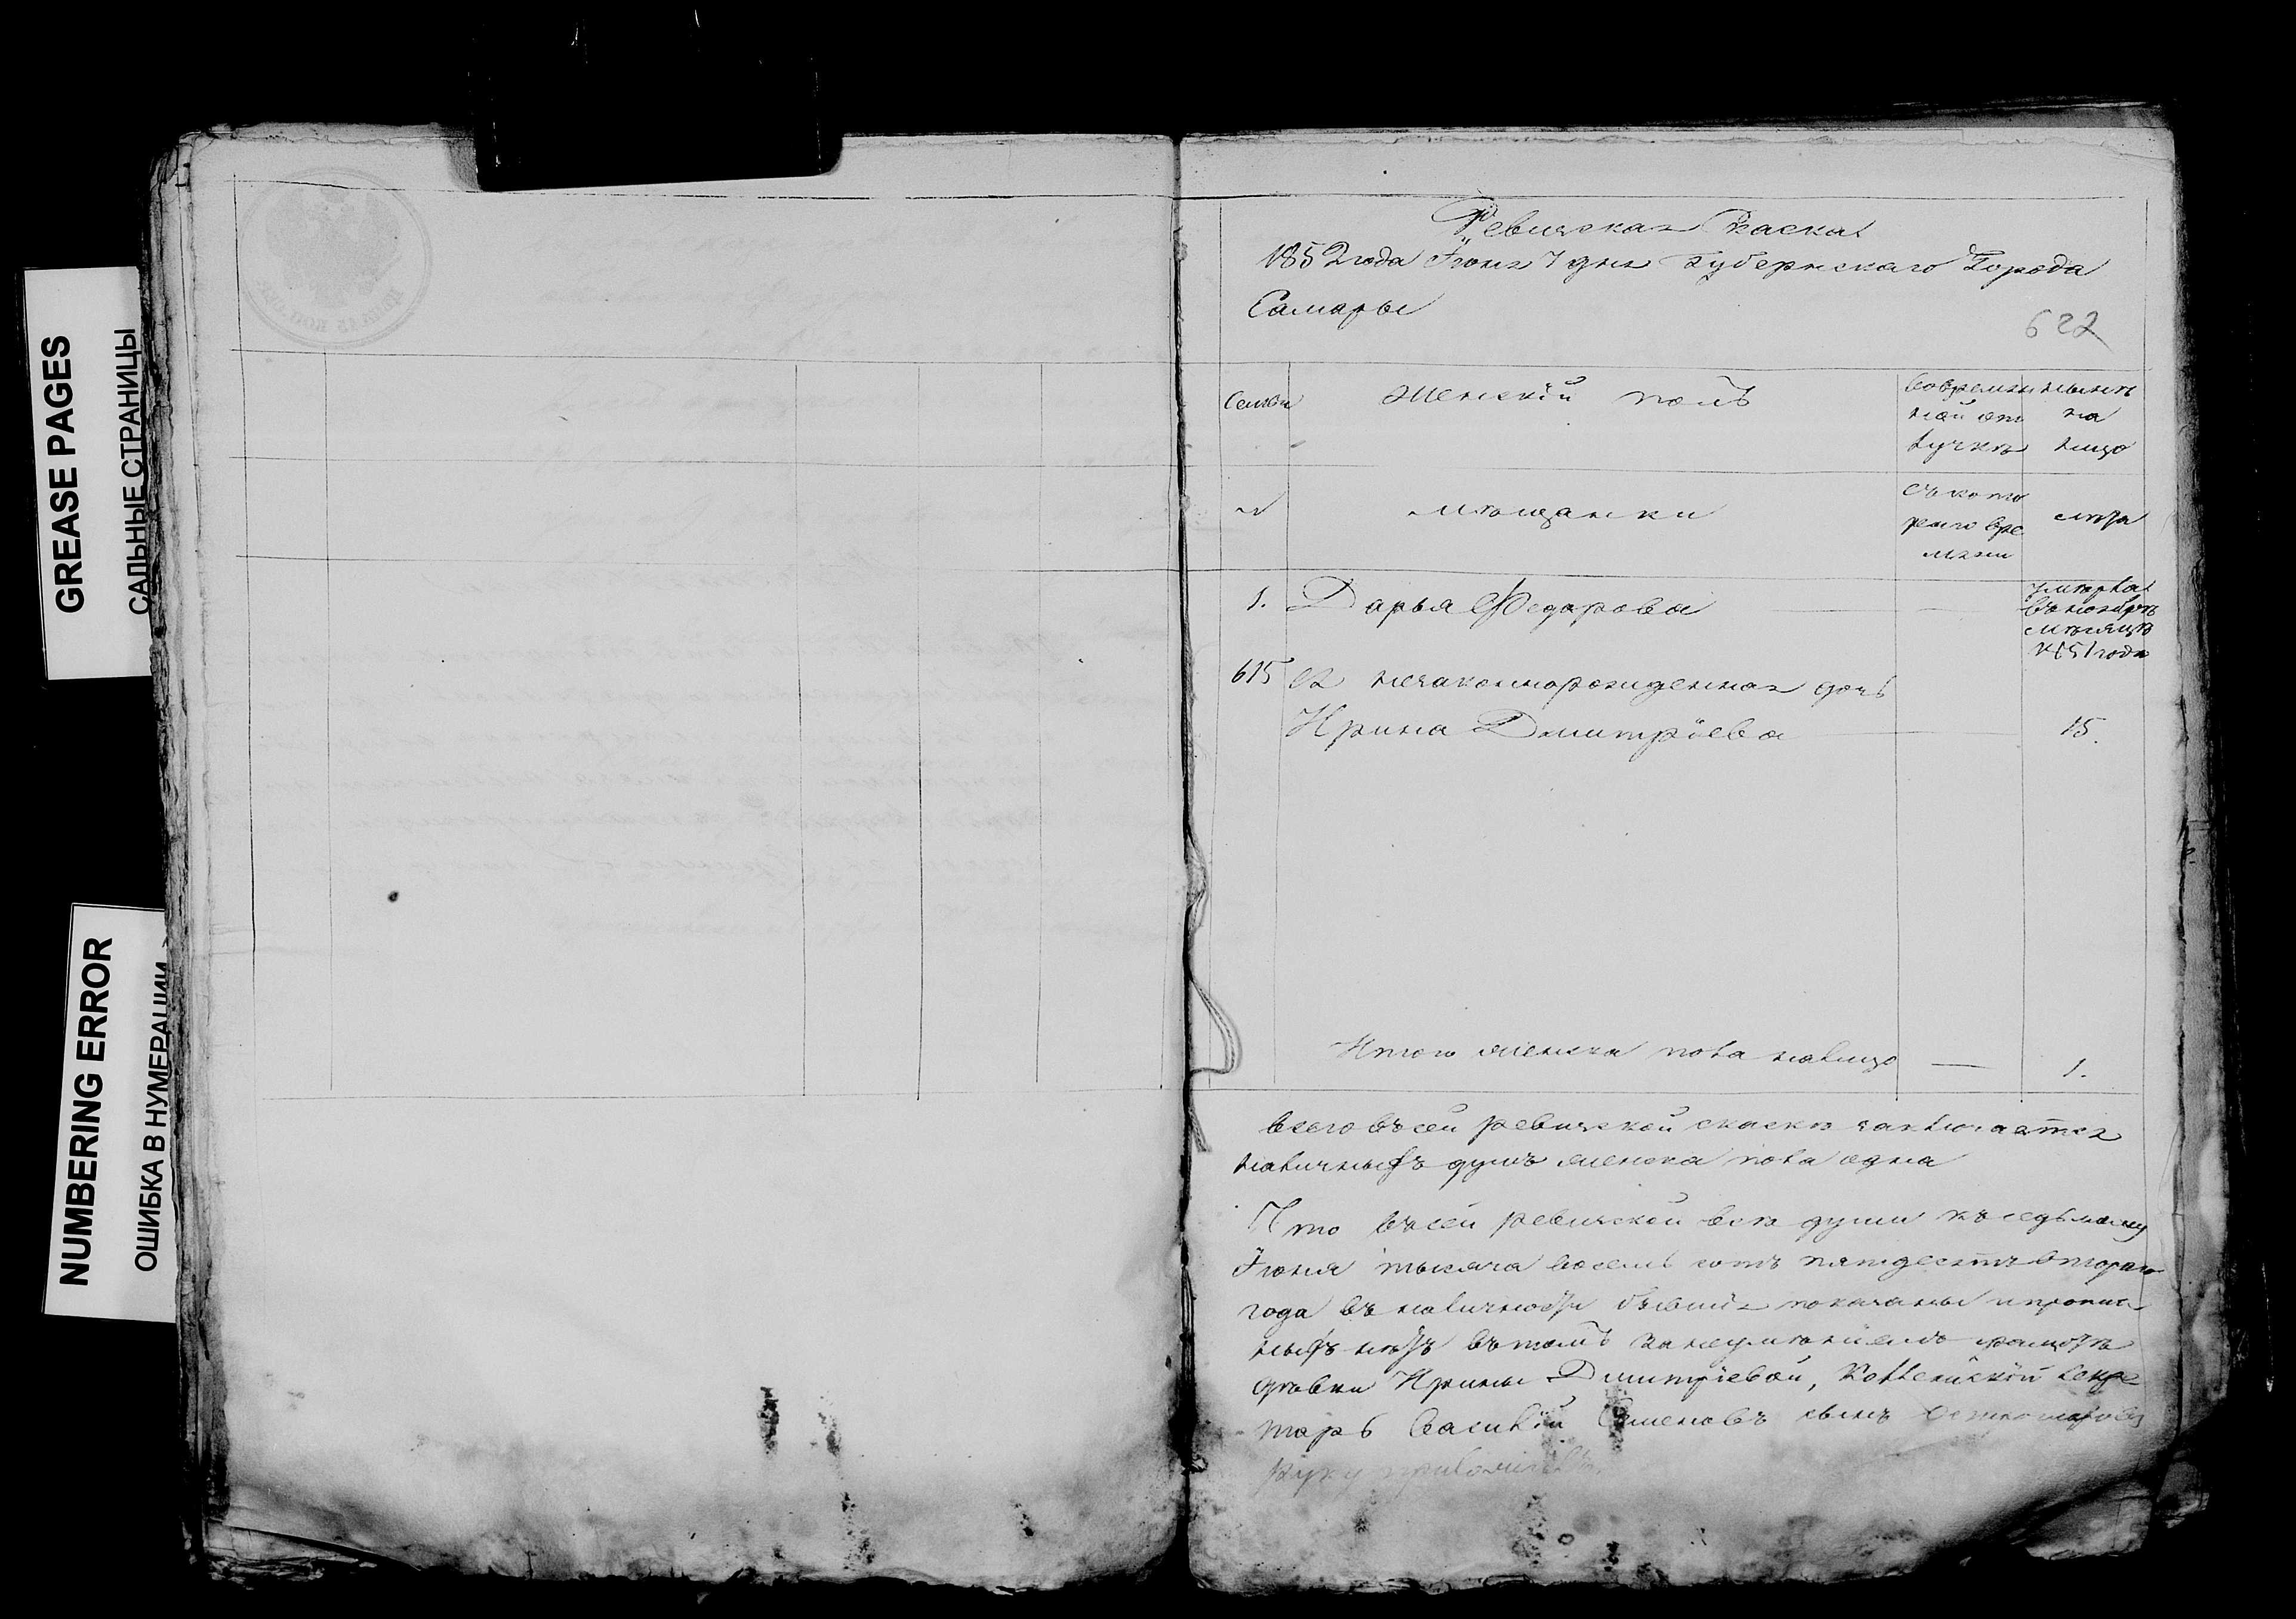 GREASE PAGES
САЛЬНЫЕ СТРАНИЦЫ
NUMBERING ERROR
ОШИБКА В НУМЕРАЦИИ
Ревизская Скаска
1852 года Іюня 7 дня Губернскаго Города
Самары
622
Семьи
Женскій полъ
Во временной отлучкѣ
Нынѣ на лицо
№
мѣщанки
Съ котораго времяни
лѣта
1. Дарья Федорова — умерла въ ноябрѣ мѣсяцѣ 1851 года
615 Ея незаконнорожденная дочь
Ирина Дмитріева — 15.
Итого женска пола налицо — 1.
Всего въ сей ревизской скаскѣ заключается
наличныхъ душъ женска пола одна
Что въ сей ревизской всѣ души къ седьмому
Іюня тысяча восемь сотъ пятдесятъ втораго
года въ наличности бывшія показаны и пропис
ныхъ нѣтъ въ томъ за неумѣніемъ грамотѣ
дѣвки Ирины Дмитріевой, Коллежскій Секре
тарь Василій Семеновъ сынъ
руку приложилъ.